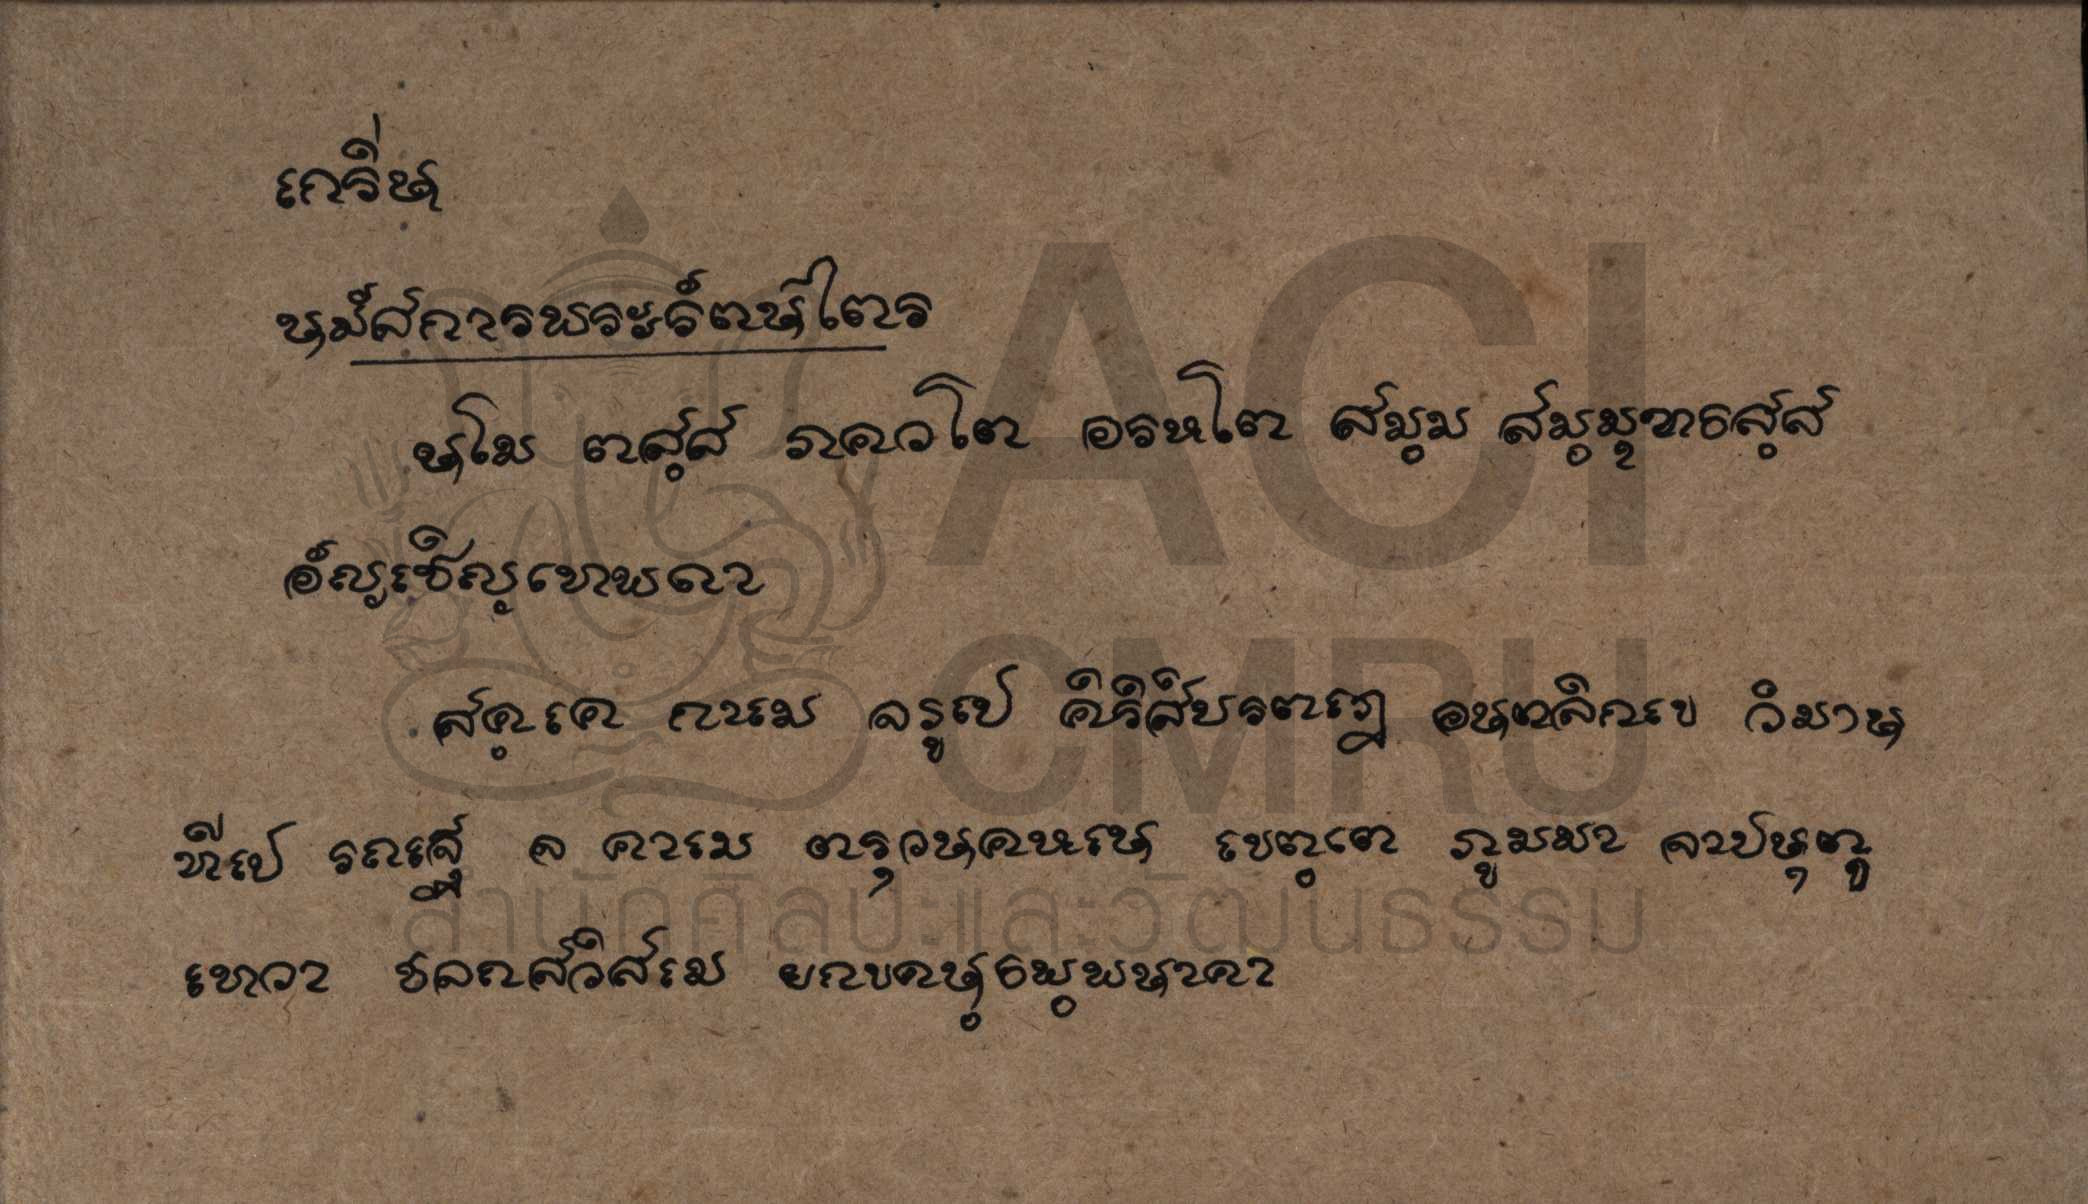 เกริ่น
นมัสการพระรัตน์ไตร
นโม ตสฺส ภควโต อรหโต สมฺม สมฺมุทธสฺส
อัญเชิญเทพดา
สคฺเค กาเม จรูเป คิริสิขรตเฏ อนตลิกเข วิมาน
ทีเป รฏเฐ จ คาเม ตรุวนคหเน เขตฺเต ภูมมา
เทวา ยกขคนฺธพฺพนาคา
ACI
CMRU
สำนักศิลปะและวัฒนธรรม